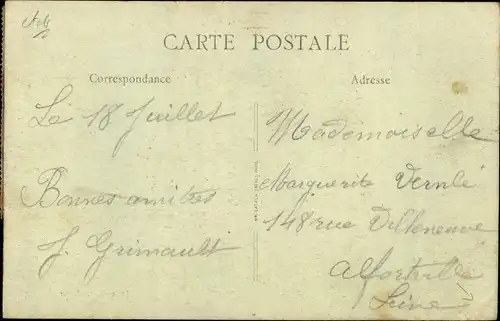 CARTE POSTALE
Correspondance
Adresse
Le 18 Juillet
Bonnes amitiés
J. Grimault
Mademoiselle
Marguerite Vernlé
148 rue Villeneuve
Alfortville
Seine